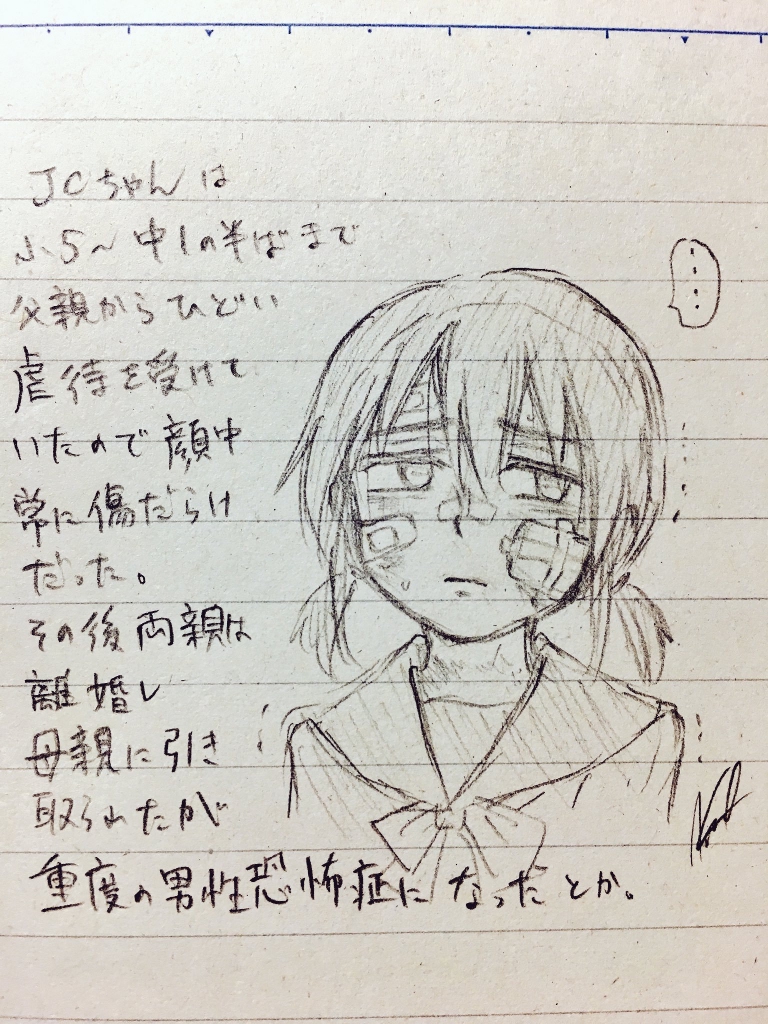 JCちゃんは
小5〜中1の半ばまで
父親からひどい
虐待を受けて
いたので顔中
常に傷だらけ
だった。
その後両親は
離婚し
母親に引き
取られたが
重度の男性恐怖症になったとか。